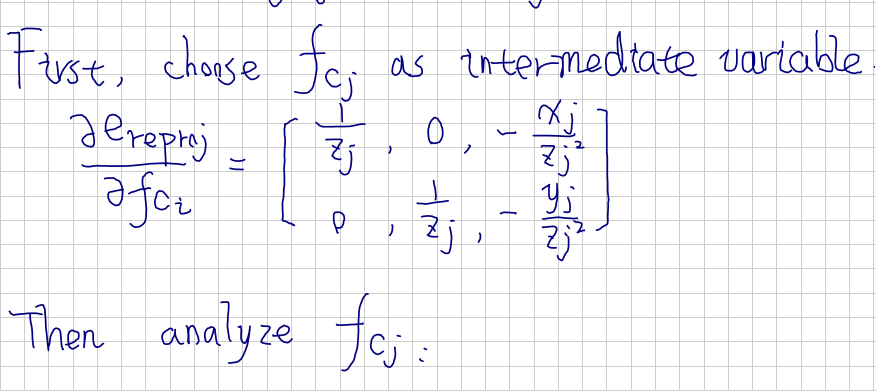 First, choose f_{c_j} as intermediate variable.
\frac{\partial e_{reproj}}{\partial f_{c_i}} = \begin{bmatrix} \frac{1}{z_j}, 0, -\frac{x_j}{z_j^2} \\ 0, \frac{1}{z_j}, -\frac{y_j}{z_j^2} \end{bmatrix}
Then analyze f_{c_j}: